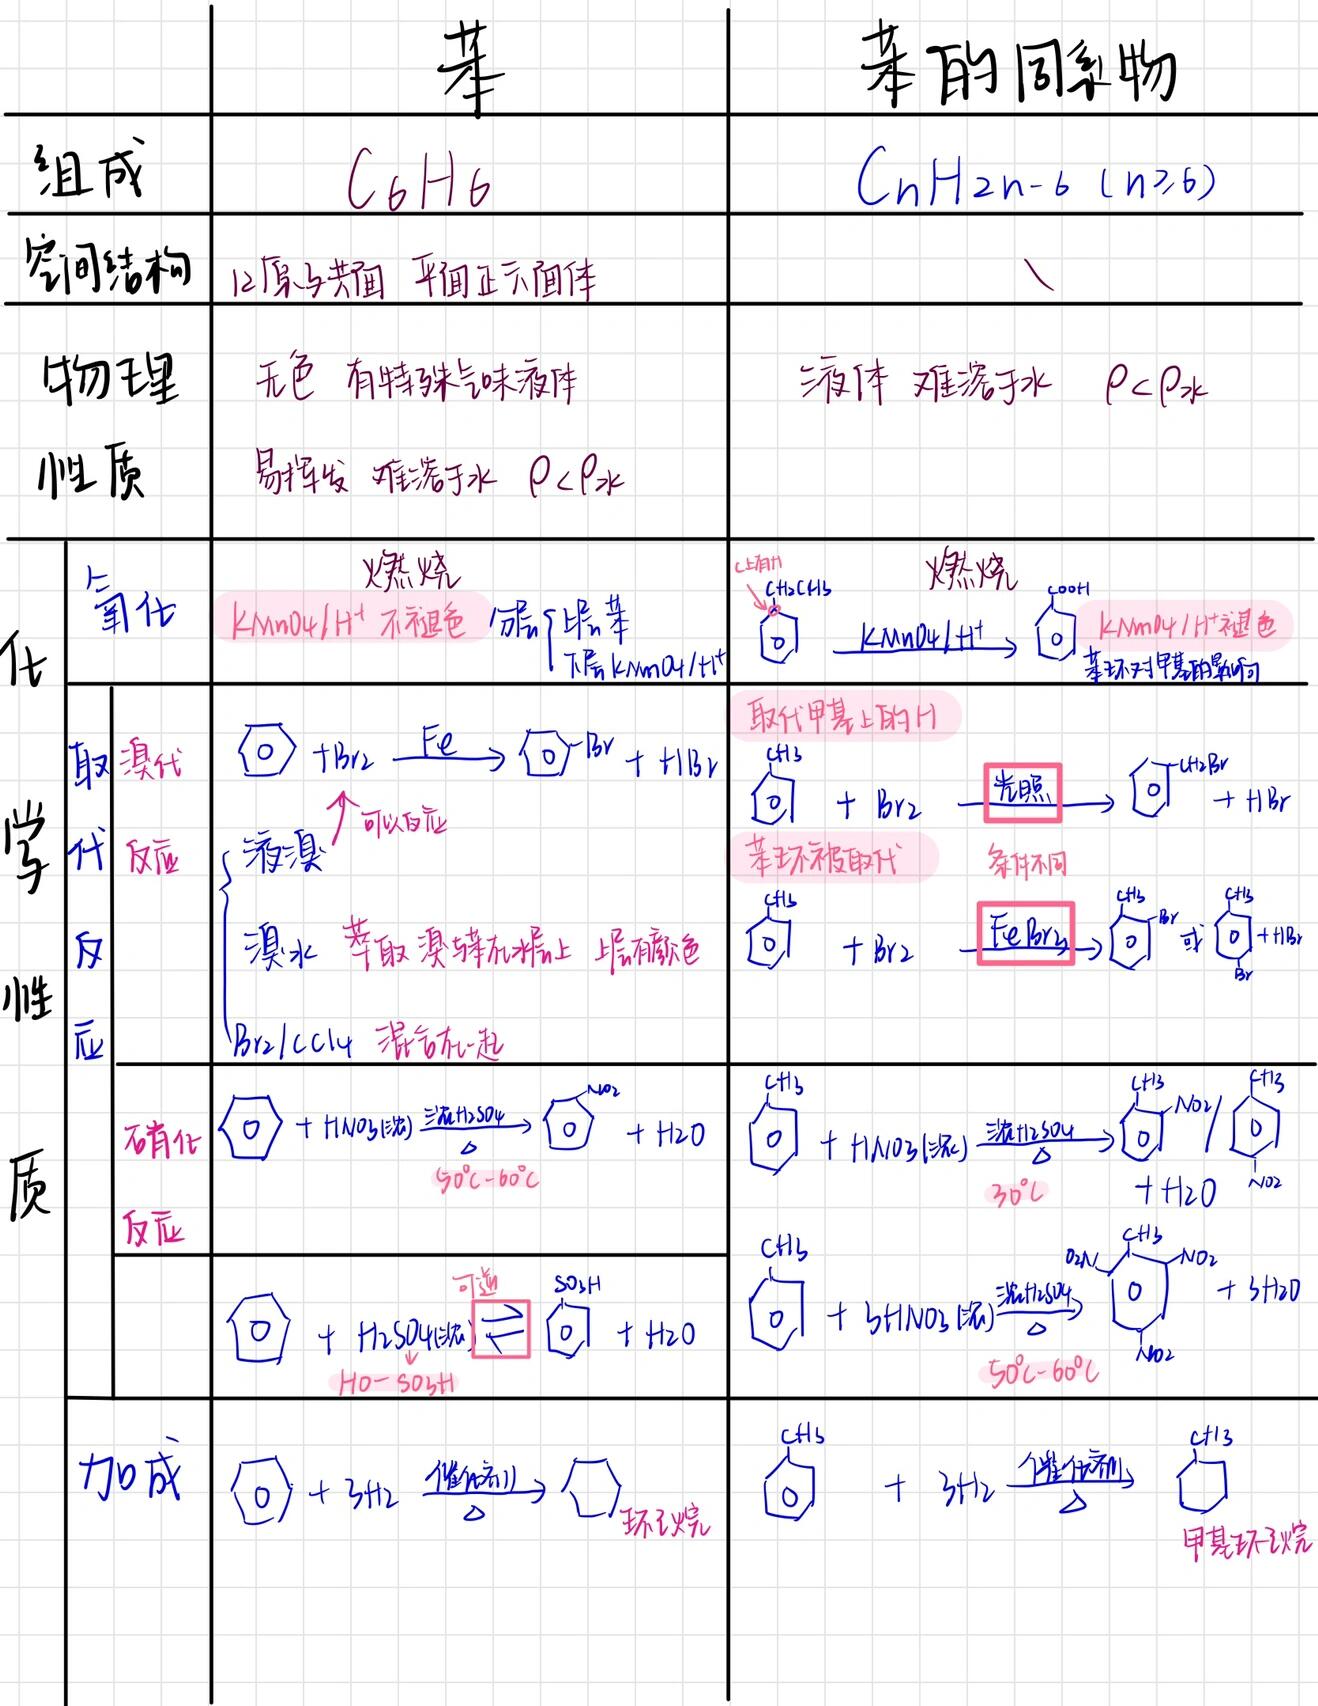 苯 苯的同系物
组成 C6H6 CnH2n-6 (n≥6)
空间结构 12原子共面 平面正六面体 \
物理 无色 有特殊气味液体 液体 难溶于水 ρ<ρ水
性质 易挥发 难溶于水 ρ<ρ水
化学性质
氧化 燃烧
KMnO4/H+ 不褪色 分层 { 上层苯
下层KMnO4/H+
C上有H 燃烧
CH2CH3 KMnO4/H+ COOH KMnO4/H+褪色
苯环对甲基的影响
取代反应
溴代反应
+Br2 Fe -Br + HBr
可以反应
液溴
溴水 萃取 溴与苯在水层上 上层有颜色
Br2/CCl4 混合在一起
取代甲基上的H
CH3 + Br2 光照 CH2Br + HBr
苯环被取代 条件不同
CH3 + Br2 FeBr3 CH3 Br 或 CH3 Br +HBr
硝化反应
+ HNO3(浓) 浓H2SO4 △ NO2 + H2O
50℃-60℃
CH3 + HNO3(浓) 浓H2SO4 △ CH3 NO2 / CH3 NO2
30℃ + H2O
可逆
+ H2SO4(浓) ⇌ SO3H + H2O
HO-SO3H
CH3 + 3HNO3(浓) 浓H2SO4 △ O2N CH3 NO2 NO2 + 3H2O
50℃-60℃
加成
+ 3H2 催化剂 △ 环己烷
CH3 + 3H2 催化剂 △ CH3
甲基环己烷